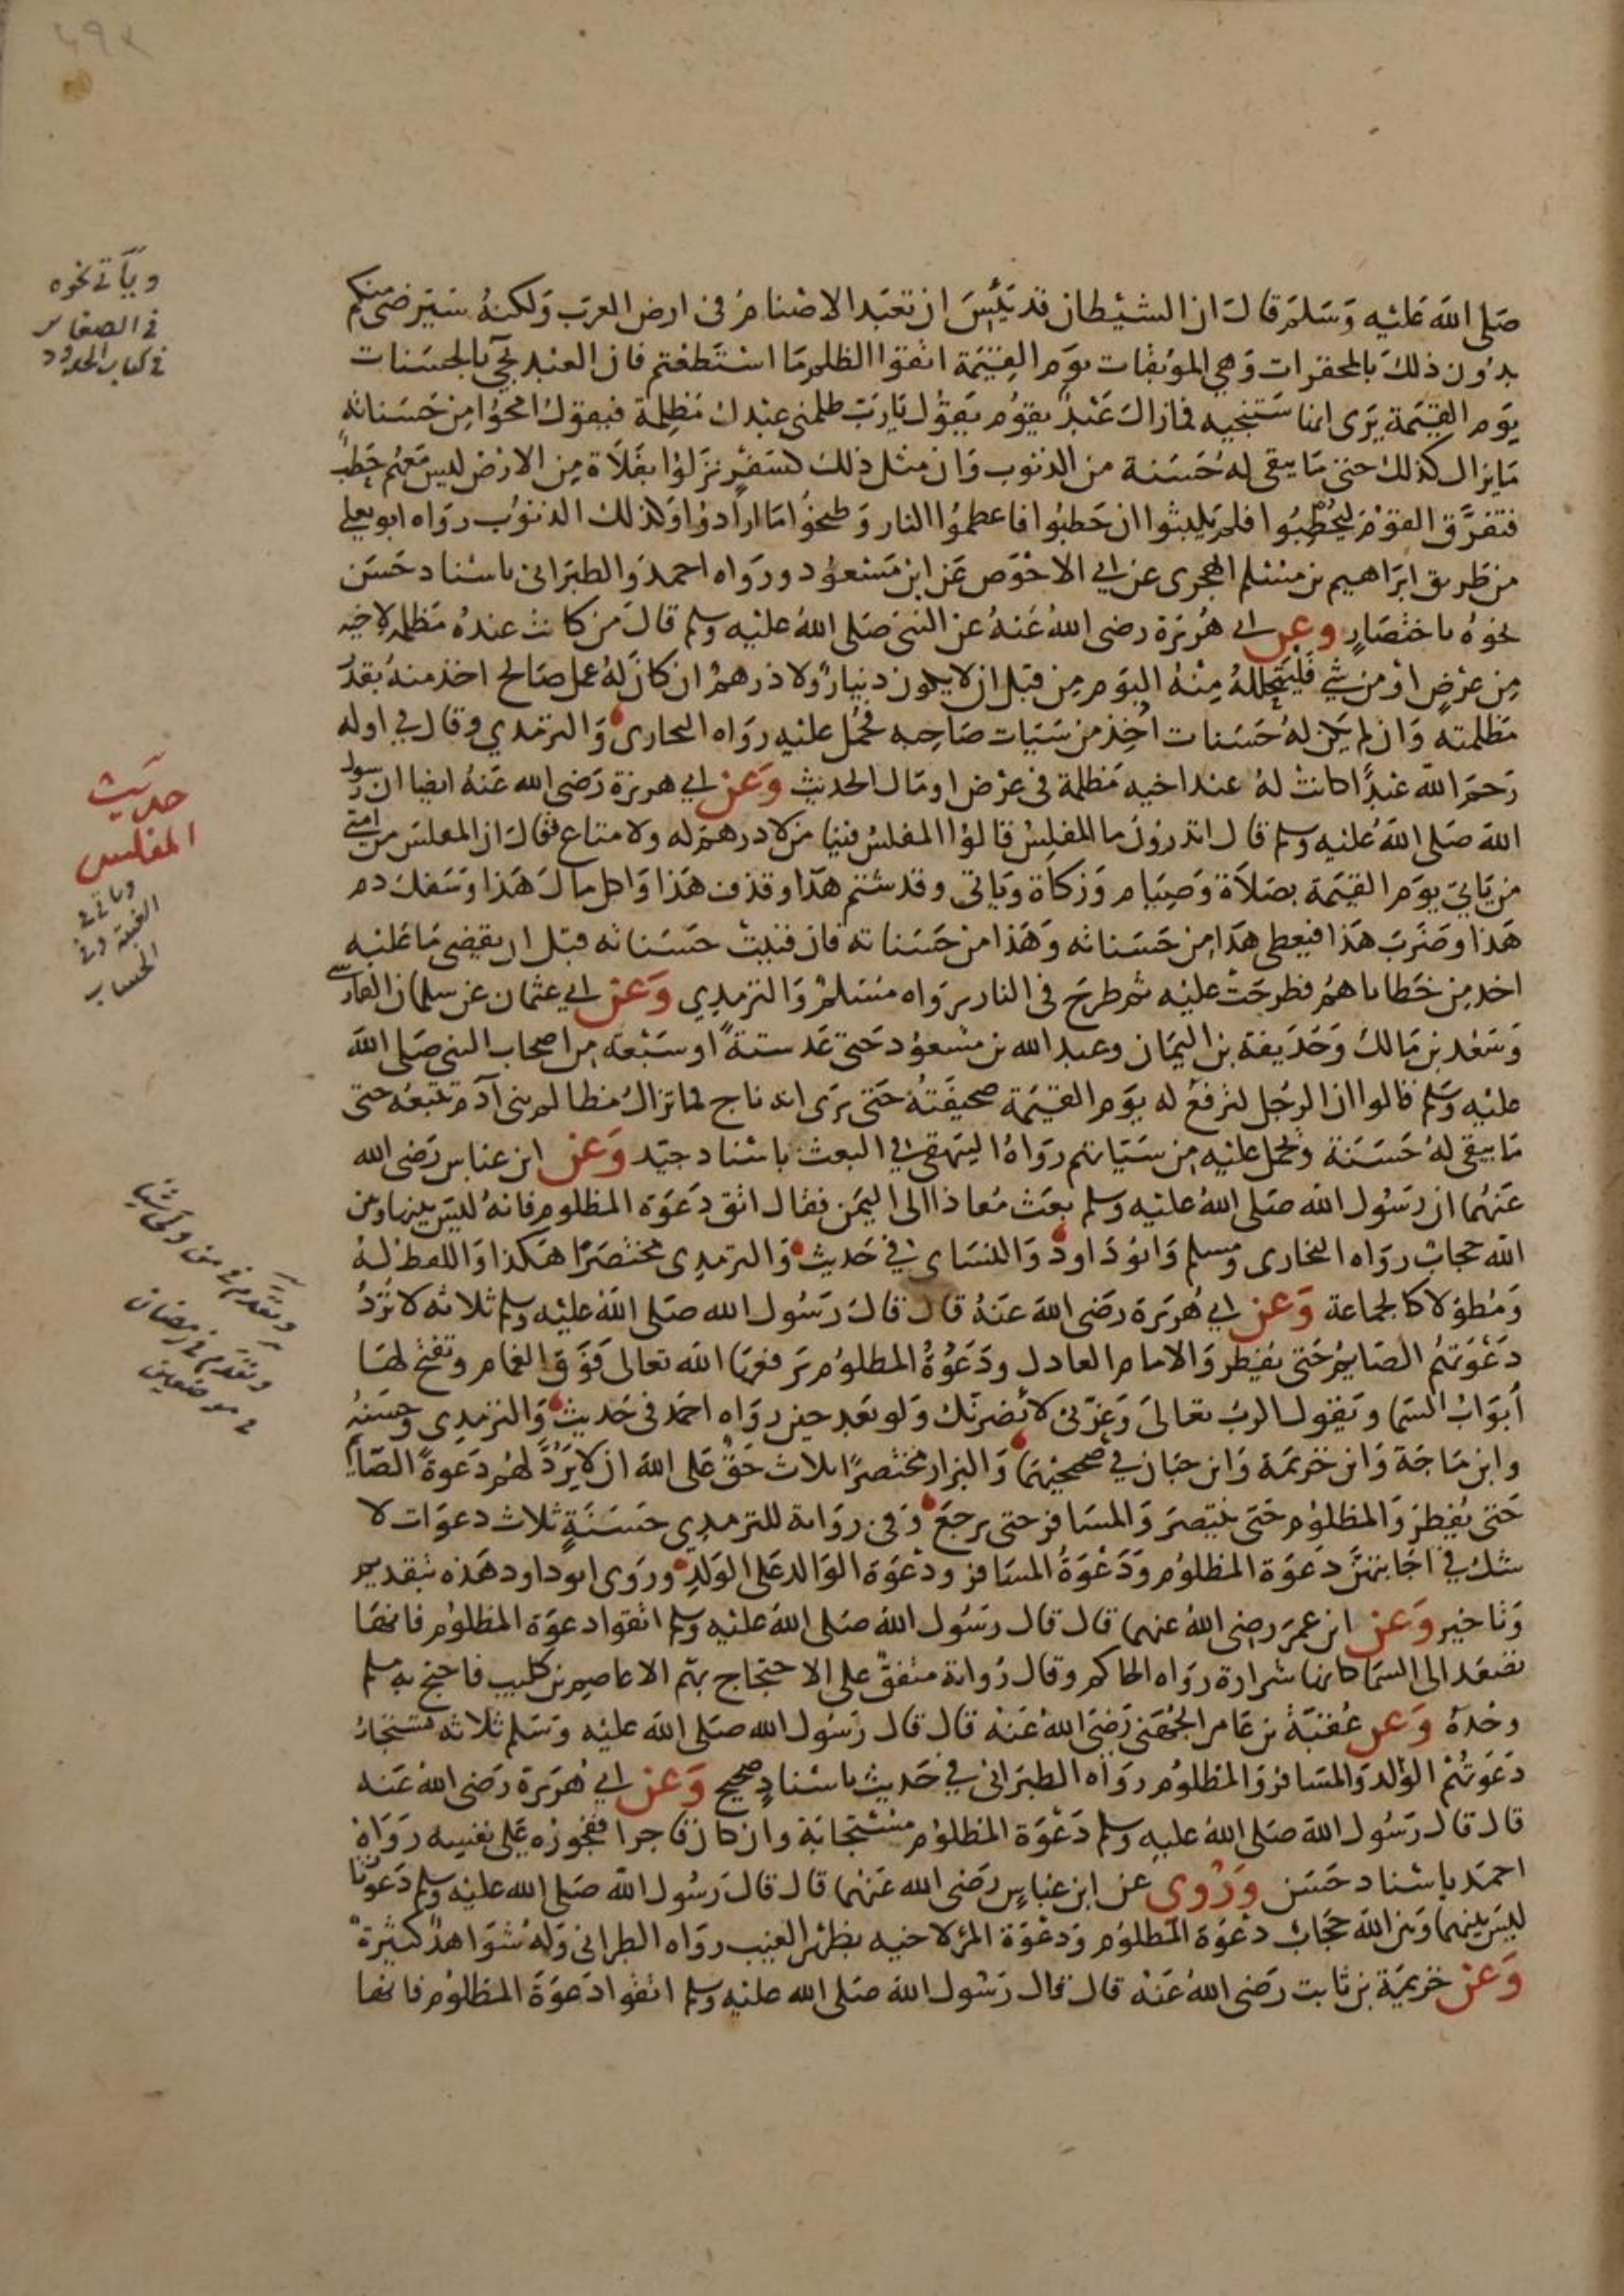 صلى الله عليه وسلم قال ان الشيطان قد يئس ان تعبد الاصنام في ارض العرب ولكنه سيرضى منكم
بدون ذلك بالمحقرات وهي الموبقات يوم القيمة اتقوا الظلم ما استطعتم فان العبد يجي بالحسنات
يوم القيمة يرى انها ستنجيه فما زال عبد يقوم يقول يارب ظلمني عبدك مظلمة فيقول امحوا من حسناته
ما يزال كذلك حتى ما يبقى له حسنة من الذنوب وان مثل ذلك كسفر نزلوا بفلاة من الارض ليس معهم حطب
فتفرق القوم ليحطبوا فلم يلبثوا ان حطبوا فاعظموا النار وطبخوا ما ارادوا وكذلك الذنوب رواه ابو يعلى
من طريق ابراهيم بن مسلم الهجري عن ابي الاحوص عن ابن مسعود ورواه احمد والطبراني باسناد حسن
نحوه باختصار وعن ابي هريرة رضي الله عنه عن النبي صلى الله عليه وسلم قال من كانت عنده مظلمة لاخيه
من عرض او من شي فليتحلله منه اليوم من قبل ان لا يكون دينار ولا درهم ان كان له عمل صالح اخذ منه بقدر
مظلمته وان لم يكن له حسنات اخذ من سيات صاحبه فحمل عليه رواه البخاري والترمذي وقال في اوله
رحم الله عبدا كانت له عند اخيه مظلمة في عرض او مال الحديث وعن ابي هريرة رضي الله عنه ايضا ان رسول
الله صلى الله عليه وسلم قال اتدرون ما المفلس قالوا المفلس فينا من لا درهم له ولا متاع فقال ان المفلس من امتي
من ياتي يوم القيمة بصلاة وصيام وزكاة وياتي وقد شتم هذا وقذف هذا واكل مال هذا وسفك دم
هذا وضرب هذا فيعطى هذا من حسناته وهذا من حسناته فان فنيت حسناته قبل ان يقضي ما عليه
اخذ من خطاياهم فطرحت عليه ثم طرح في النار رواه مسلم والترمذي وعن ابي عثمان عن سلمان الفارسي
وسعد بن مالك وحذيفة بن اليمان وعبد الله بن مسعود حتى عد ستة او سبعة من اصحاب النبي صلى الله
عليه وسلم قالوا ان الرجل لترفع له يوم القيمة صحيفته حتى يرى انه ناج فما تزال مظالم بني آدم تتبعه حتى
ما يبقى له حسنة وتحمل عليه من سيئاتهم رواه البيهقي في البعث باسناد جيد وعن ابن عباس رضي الله
عنهما ان رسول الله صلى الله عليه وسلم بعث معاذا الى اليمن فقال اتق دعوة المظلوم فانه ليس بينها وبين
الله حجاب رواه البخاري ومسلم وابو داود والنساي في حديث والترمذي مختصرا هكذا واللفظ له
ومطولا كالجماعة وعن ابي هريرة رضي الله عنه قال قال رسول الله صلى الله عليه وسلم ثلاثه لا ترد
دعوتهم الصايم حتى يفطر والامام العادل ودعوة المظلوم يرفعها الله تعالى فوق الغمام وتفتح لها
أبواب السما ويقول الرب تعالى وعزتي لأنصرنك ولو بعد حين رواه احمد في حديث والترمذي وحسنه
وابن ماجة وابن خزيمة وابن حبان في صحيحيهما والبزار مختصرا ثلاث حق على الله ان لا يرد لهم دعوة الصايم
حتى يفطر والمظلوم حتى ينتصر والمسافر حتى يرجع وفي رواية للترمذي حسنة ثلاث دعوات لا
شك في اجابتهن دعوة المظلوم ودعوة المسافر ودعوة الوالد على الولد وروى ابو داود هذه بتقديم
وتاخير وعن ابن عمر رضي الله عنهما قال قال رسول الله صلى الله عليه وسلم اتقوا دعوة المظلوم فانها
تصعد الى السما كانها شرارة رواه الحاكم وقال رواية متفق على الاحتجاج بهم الا عاصم بن كليب فاحتج به مسلم
وحده وعن عقبة بن عامر الجهني رضي الله عنه قال قال رسول الله صلى الله عليه وسلم ثلاثه تستجاب
دعوتهم الوالد والمسافر والمظلوم رواه الطبراني في حديث باسناد صحيح وعن ابي هريرة رضي الله عنه
قال قال رسول الله صلى الله عليه وسلم دعوة المظلوم مستجابة وان كان فاجرا ففجوره على نفسه رواه
احمد باسناد حسن وروي عن ابن عباس رضي الله عنهما قال قال رسول الله صلى الله عليه وسلم دعوتان
ليس بينهما وبين الله حجاب دعوة المظلوم ودعوة المرء لاخيه بظهر الغيب رواه الطبراني وله شواهد كثيرة
وعن خزيمة بن ثابت رضي الله عنه قال قال رسول الله صلى الله عليه وسلم اتقوا دعوة المظلوم فانها
ويأتي نحوه
في الصغاير
في كتاب الحدود
حديث
المفلس
وياتي في
الغيبة وفي
الحساب
وتقدم في
وتقدم في رمضان
في موضعين